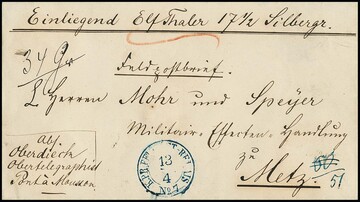 Einliegend Elf Thaler 17½ Silbergr.
Feldpostbrief.
Herren Mohr und Speyer
Militair-Effecten-Handlung
zu
Metz.
Abs.
Oberdieck
Obertelegraphist
Pont à Mousson
13
4
No 7
51